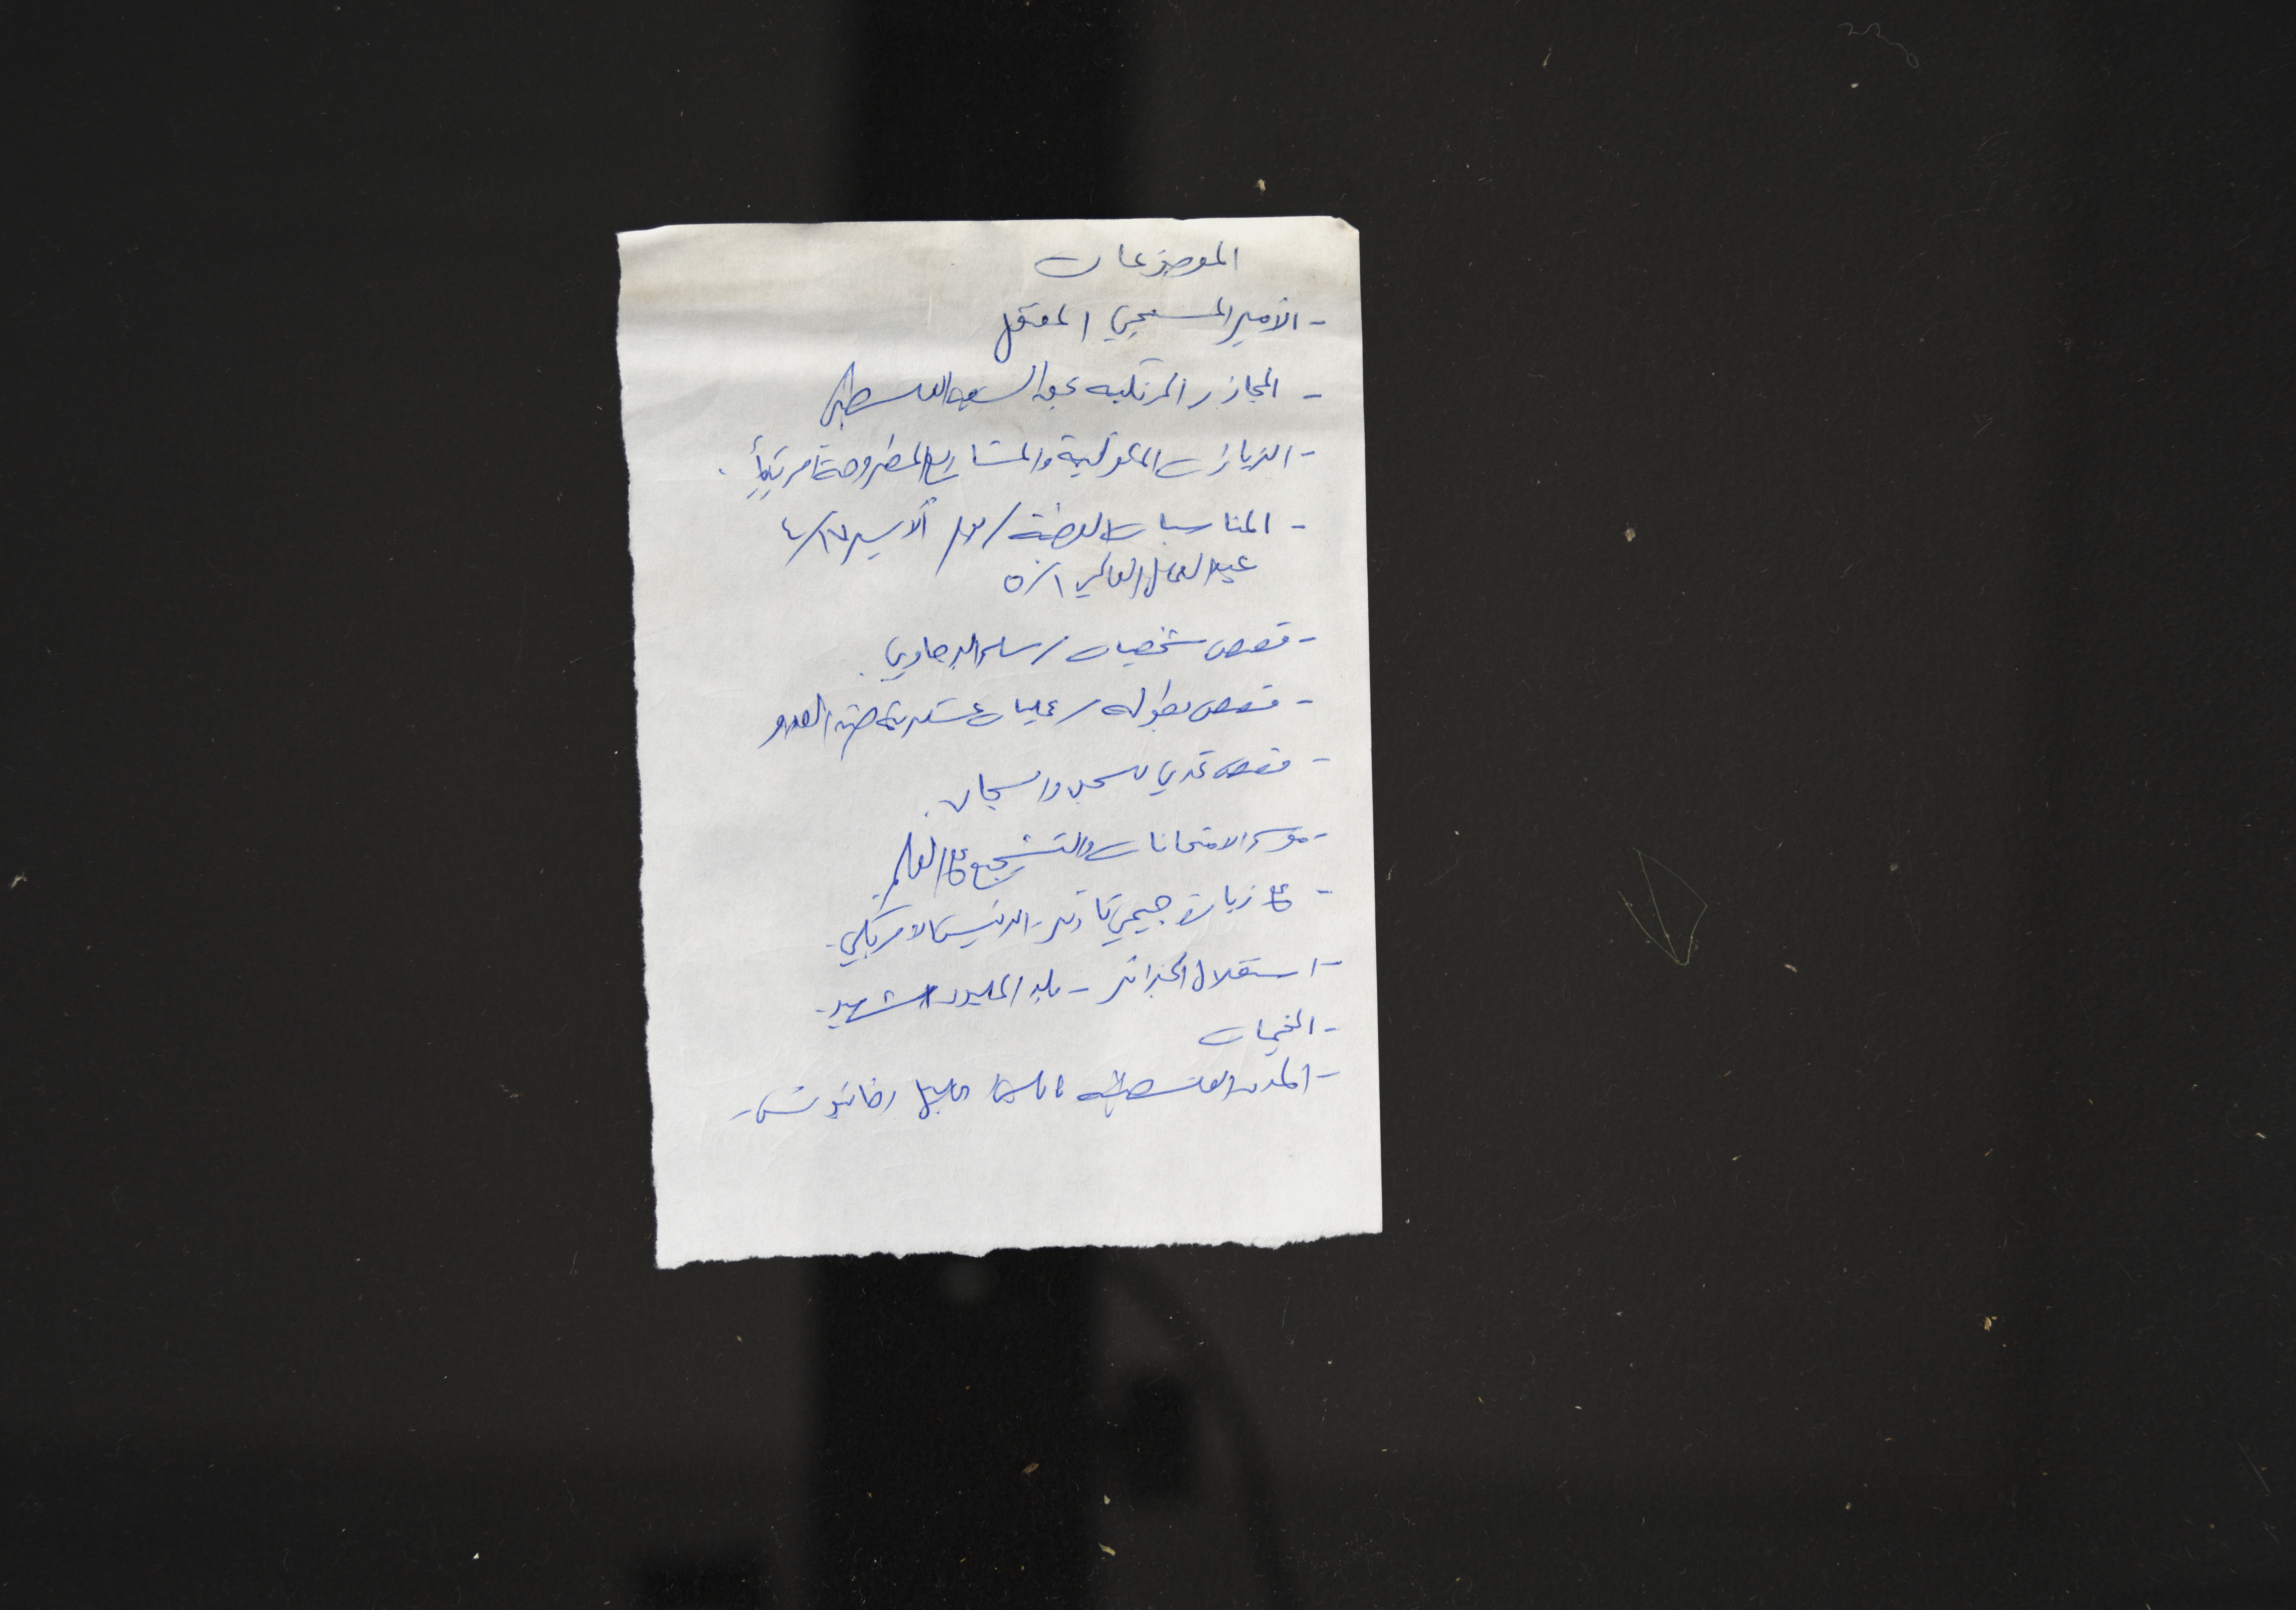 الموضوعات
- الأمير المسيحي المعتقل
- المجازر المرتكبه بحق الشعب الفلسطيني
- الزيارات المكوكية والمشاريع المطروحة امريكياً .
- المناسبات الوطنية / يوم الأسير ١٧/٤
عيد العمال العالمي ١/٥
- قصص شخصيات / سلم البرجاوي .
- قصص بطوله / عمليات عسكرية ضد العدو
- قصص تحدي للسجن والسجان .
- موسم الامتحانات والتشجيع على العلم .
- على زيارة جيمي كارتر - الرئيس الامريكي .
- استقلال الجزائر - بلد المليون شهيد .
- المخيمات
- المدن الفلسطينيه الخليل خانيونس -